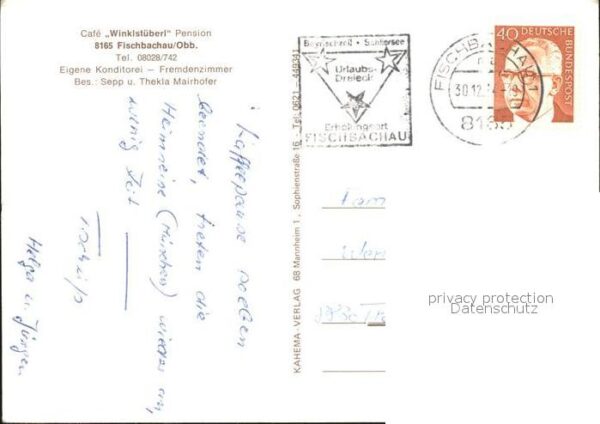 Café „Winklstüberl" Pension
8165 Fischbachau/Obb.
Tel. 08028/742
Eigene Konditorei – Fremdenzimmer
Bes.: Sepp u. Thekla Mairhofer
Bayrischzell • Schliersee
Urlaubs-
Dreieck
Erholungsort
FISCHBACHAU
FISCHBACHAU 1
30.12.
40
DEUTSCHE
BUNDESPOST
KAHEMA-VERLAG 68 Mannheim 1, Sophienstraße 16 - Tel. 0621
Kaffeepause soeben
beendet, treten die
Heimreise (München) wieder an,
wenig Zeit
Tschüß
Helga u. Jürgen
Fam
privacy protection
Datenschutz